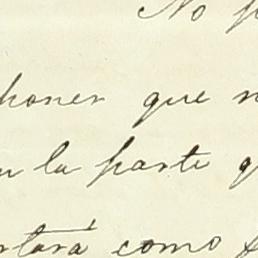 No p
poner que n
n la parte q
rtará como